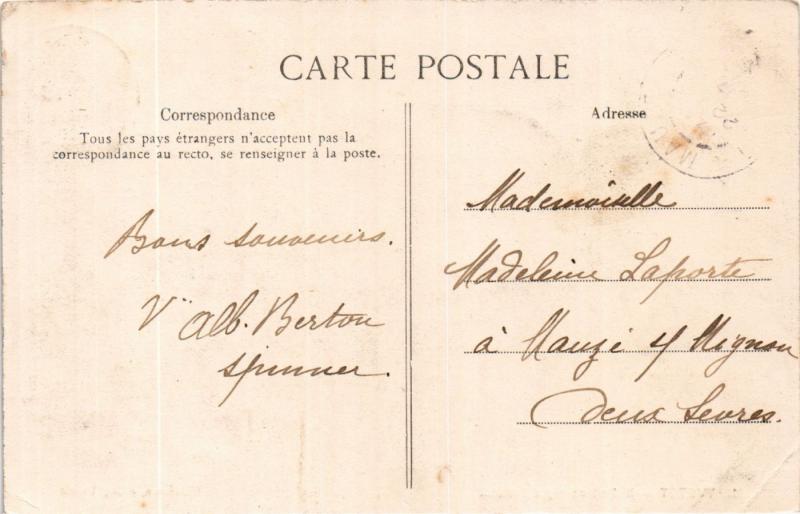 CARTE POSTALE
Correspondance
Tous les pays étrangers n'acceptent pas la
correspondance au recto, se renseigner à la poste.
Bons souvenirs.
Alb. Berton
Adresse
Mademoiselle
Madeleine Laporte
à Mauzé s/ Mignon
Deux Sèvres.